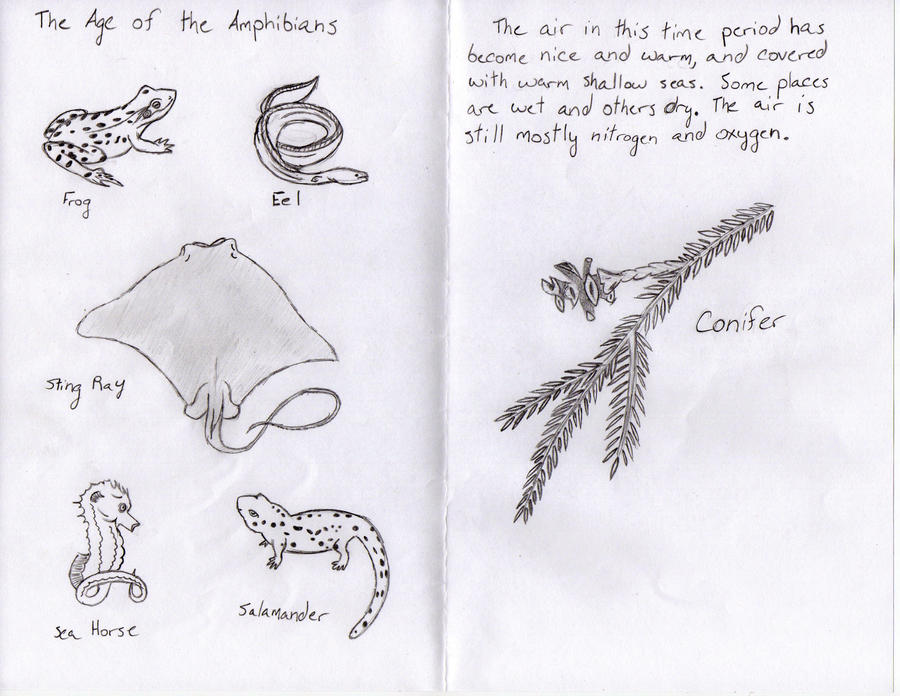 The Age of the Amphibians
Frog
Eel
Sting Ray
Sea Horse
Salamander
The air in this time period has
become nice and warm, and covered
with warm shallow seas. Some places
are wet and others dry. The air is
still mostly nitrogen and oxygen.
Conifer